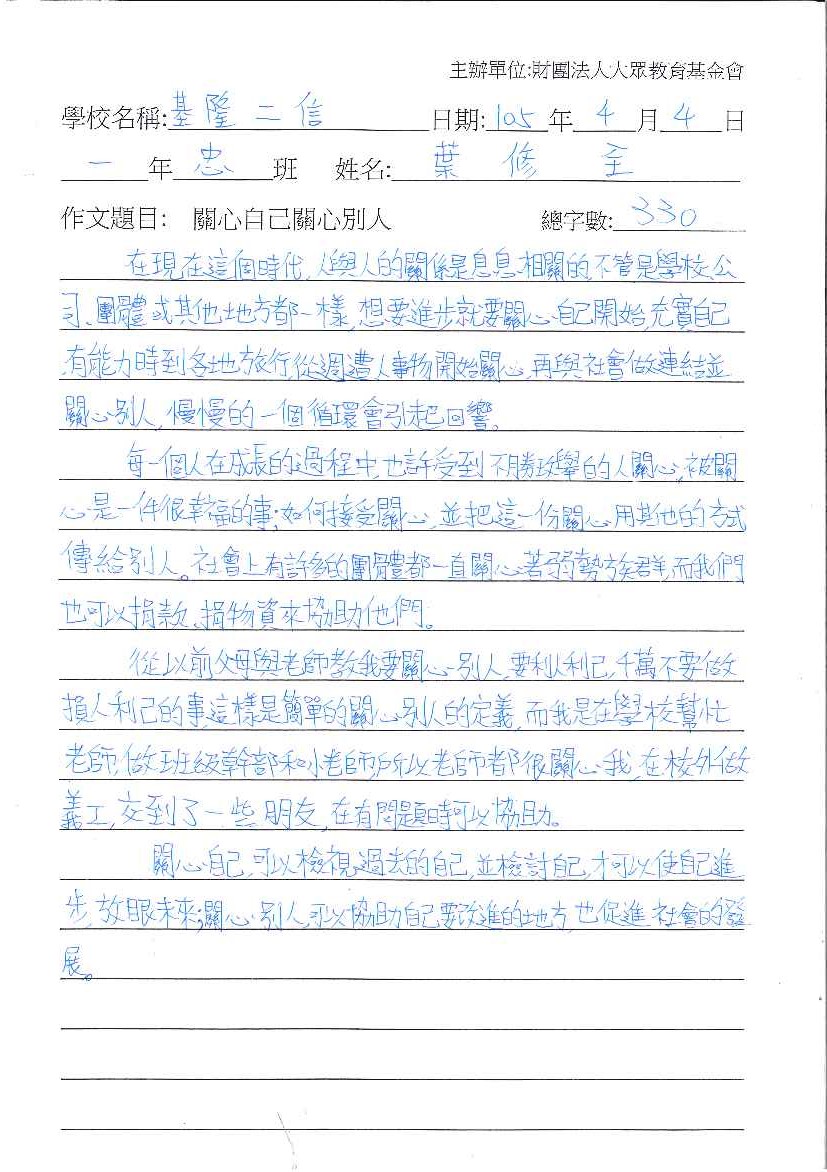 主辦單位:財團法人大眾教育基金會
學校名稱:基隆二信 日期:105年4月4日
一年忠班 姓名:葉修至
作文題目: 關心自己關心別人 總字數:330
在現在這個時代,人與人的關係是息息相關的,不管是學校、公
司、團體或其他地方都一樣,想要進步就要關心自己開始,充實自己
有能力時到各地方旅行,從週遭人事物開始關心,再與社會做連結並
關心別人,慢慢的一個循環會引起回響。
每一個人在成長的過程中,也許受到不勝玫舉的人關心,被關
心是一件很幸福的事;如何接受關心,並把這一份關心用其他的方式
傳給別人。社會上有許多的團體都一直關心著弱勢族群,而我們
也可以捐款、捐物資來協助他們。
從以前父母與老師教我要關心別人,要利人利己,千萬不要做
損人利己的事,這樣是簡單的關心別人的定義,而我是在學校幫忙
老師,做班級幹部和小老師,所以老師都很關心我,在校外做
義工,交到了一些朋友,在有問題時可以協助。
關心自己,可以檢視過去的自己,並檢討自己,才可以使自己進
步,放眼未來;關心別人,可以協助自己要改進的地方,也促進社會的發
展。